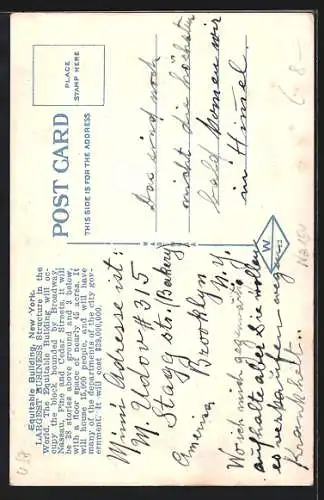 Equitable Building, New York.
LARGEST BUSINESS Structure in the
World. The Equitable Building will oc-
cupy the block bounded by Broadway,
Nassau, Pine and Cedar Streets; it will
be 38 stories above ground and 3 below,
with a floor space of nearly 45 acres. It
will house 15,000 people, and will have
many of the departments of the city gov-
ernment. It will cost $29,000,000.
POST CARD
THIS SIDE IS FOR THE ADDRESS
PLACE
STAMP HERE
Das wird noch
nicht die höchsten
bald komen wir
in Himel.
Minni Adresse ist:
M. Udov #315
Stagg str. (Bakery)
Brooklyn
N.Y.
America
Wo ich mich gegenwärtig
aufhalte aber Die wollen
es verkaufen wegen
Krankheit.
W